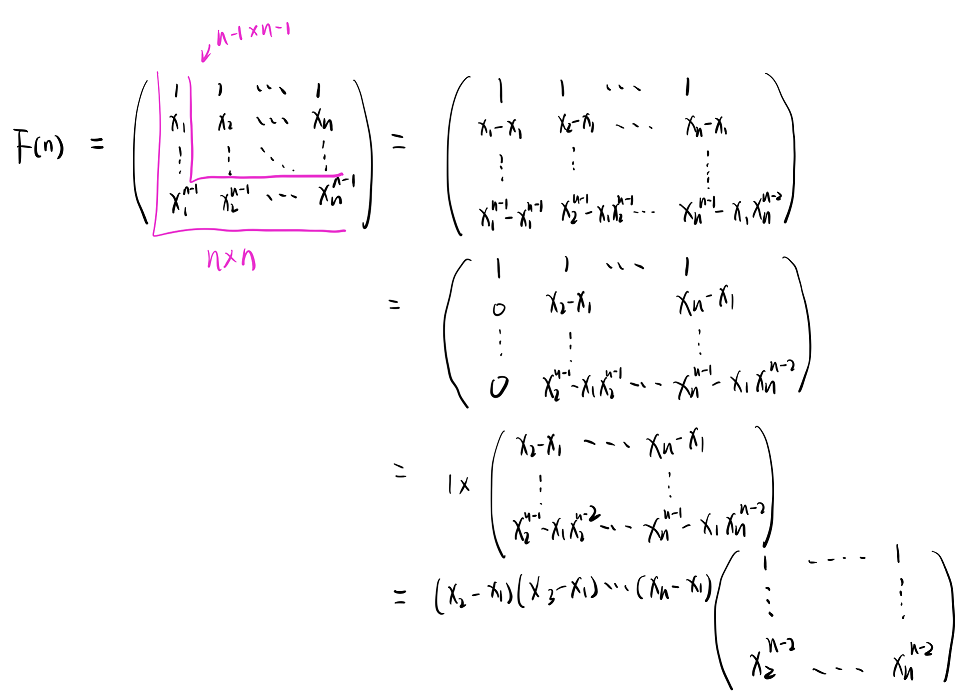 n-1×n-1
F(n) = ( 1 1 ⋯ 1 ) = ( 1 1 ⋯ 1 )
( x₁ x₂ ⋯ xₙ ) ( x₁-x₁ x₂-x₁ ⋯ xₙ-x₁ )
( ⋮ ⋮ ⋱ ⋮ ) ( ⋮ ⋮ ⋮ )
( x₁ⁿ⁻¹ x₂ⁿ⁻¹ ⋯ xₙⁿ⁻¹ ) ( x₁ⁿ⁻¹-x₁ⁿ⁻¹ x₂ⁿ⁻¹-x₁x₂ⁿ⁻¹ ⋯ xₙⁿ⁻¹-x₁xₙⁿ⁻² )
n×n
= ( 1 1 ⋯ 1 )
( 0 x₂-x₁ xₙ-x₁ )
( ⋮ ⋮ ⋮ )
( 0 x₂ⁿ⁻¹-x₁x₂ⁿ⁻¹ ⋯ xₙⁿ⁻¹-x₁xₙⁿ⁻² )
= 1× ( x₂-x₁ ⋯ xₙ-x₁ )
( ⋮ ⋮ )
( x₂ⁿ⁻¹-x₁x₂ⁿ⁻² ⋯ xₙⁿ⁻¹-x₁xₙⁿ⁻² )
= (x₂-x₁)(x₃-x₁)⋯(xₙ-x₁) ( 1 ⋯ 1 )
( ⋮ ⋮ )
( x₂ⁿ⁻² ⋯ xₙⁿ⁻² )